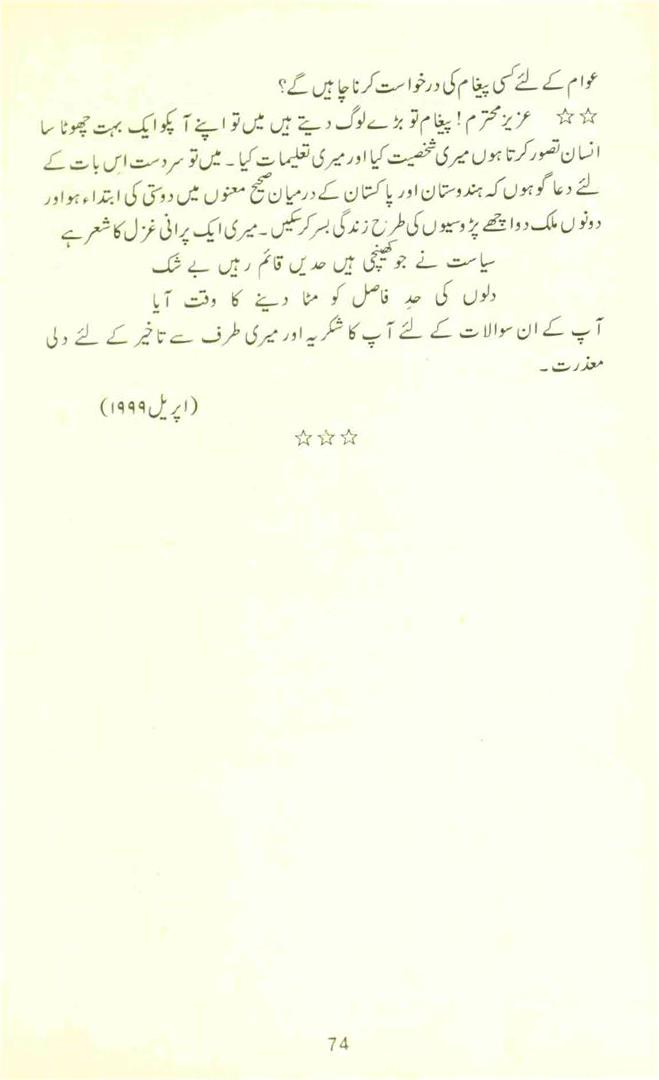 عوام کے لئے کسی پیغام کی درخواست کرنا چاہیں گے؟
☆☆ عزیز محترم! پیغام تو بڑے لوگ دیتے ہیں میں تو اپنے آپکو ایک بہت چھوٹا سا
انسان تصور کرتا ہوں میری شخصیت کیا اور میری تعلیمات کیا۔ میں تو سردست اس بات کے
لئے دعا گو ہوں کہ ہندوستان اور پاکستان کے درمیان صحیح معنوں میں دوستی کی ابتداء ہو اور
دونوں ملک دو اچھے پڑوسیوں کی طرح زندگی بسر کر سکیں۔ میری ایک پرانی غزل کا شعر ہے
سیاست نے جو کھینچی ہیں حدیں قائم رہیں بے شک
دلوں کی حدِ فاصل کو مٹا دینے کا وقت آیا
آپ کے ان سوالات کے لئے آپ کا شکریہ اور میری طرف سے تاخیر کے لئے دلی
معذرت۔
(اپریل ۱۹۹۹)
☆☆☆
74